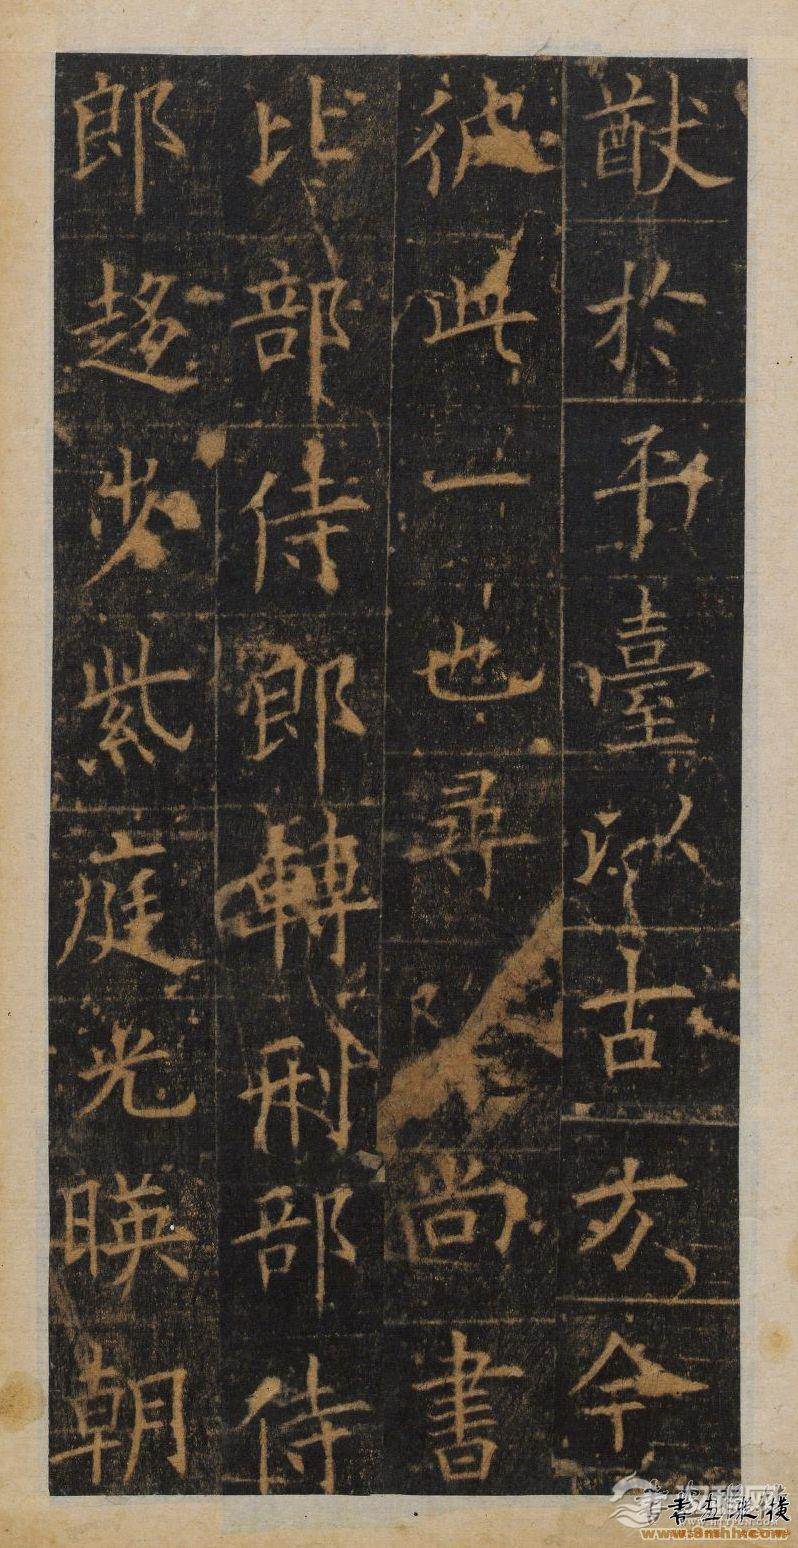 猷於平臺以古方今
彼此一也尋 尚書
比部侍郎轉刑部侍
郎趍步紫庭光暎朝